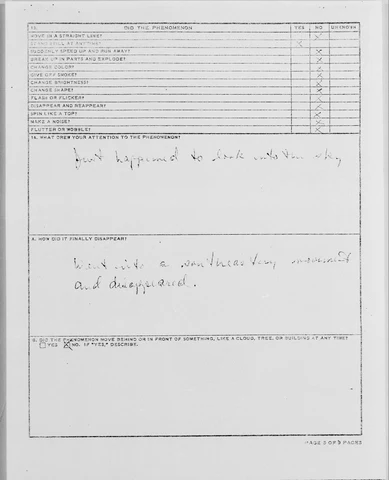 DID THE PHENOMENON YES NO UNKNOWN
MOVE IN A STRAIGHT LINE? X
STAND STILL AT ANYTIME? X
SUDDENLY SPEED UP AND RUN AWAY? X
BREAK UP IN PARTS AND EXPLODE? X
CHANGE COLOR? X
GIVE OFF SMOKE? X
CHANGE BRIGHTNESS? X
CHANGE SHAPE? X
FLASH OR FLICKER? X
DISAPPEAR AND REAPPEAR? X
SPIN LIKE A TOP? X
MAKE A NOISE? X
FLUTTER OR WOBBLE? X
WHAT DREW YOUR ATTENTION TO THE PHENOMENON?
Just happened to look into the sky
HOW DID IT FINALLY DISAPPEAR?
Went into a movement
and disappeared.
DID THE PHENOMENON MOVE BEHIND OR IN FRONT OF SOMETHING, LIKE A CLOUD, TREE, OR BUILDING AT ANY TIME?
YES X NO. IF "YES," DESCRIBE.
PAGE 2 OF 3 PAGES